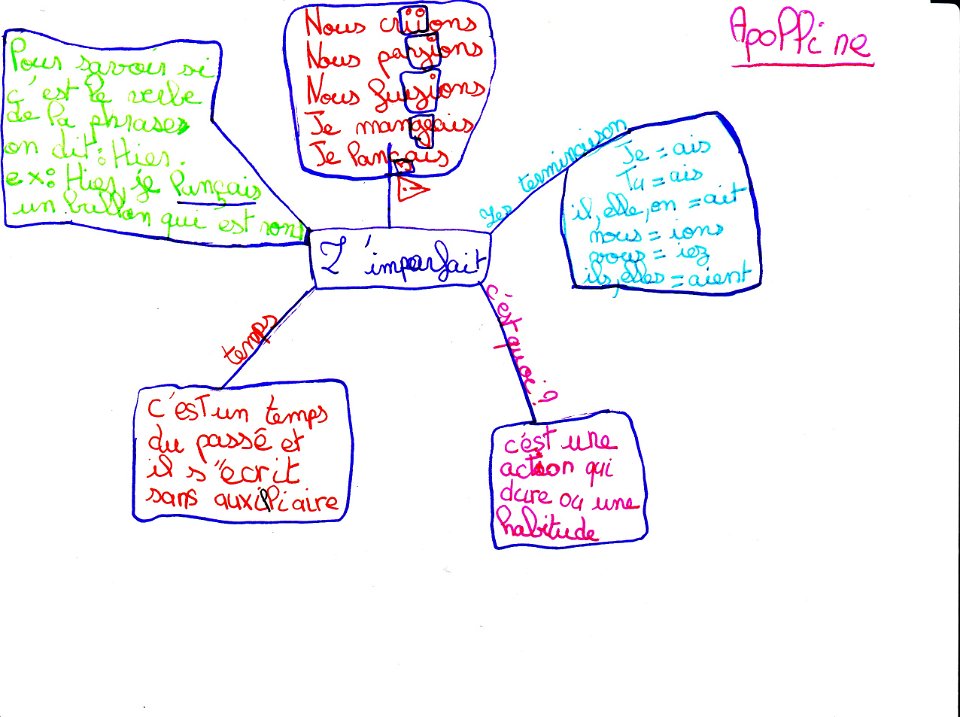 Apolline
Pour savoir si
c'est le verbe
de la phrases
on dit : Hier.
ex : Hier, je lançais
un ballon qui est rond
Nous criions
Nous pa
Nous fu
Je mangeais
Je lançais
Les terminaison
Je = ais
Tu = ais
il, elle, on = ait
nous = ions
vous = iez
ils, elles = aient
L'imparfait
temps
c'est un temps
du passé et
il s'écrit
sans auxilliaire
c'est quoi ?
c'est une
action qui
dure ou une
habitude